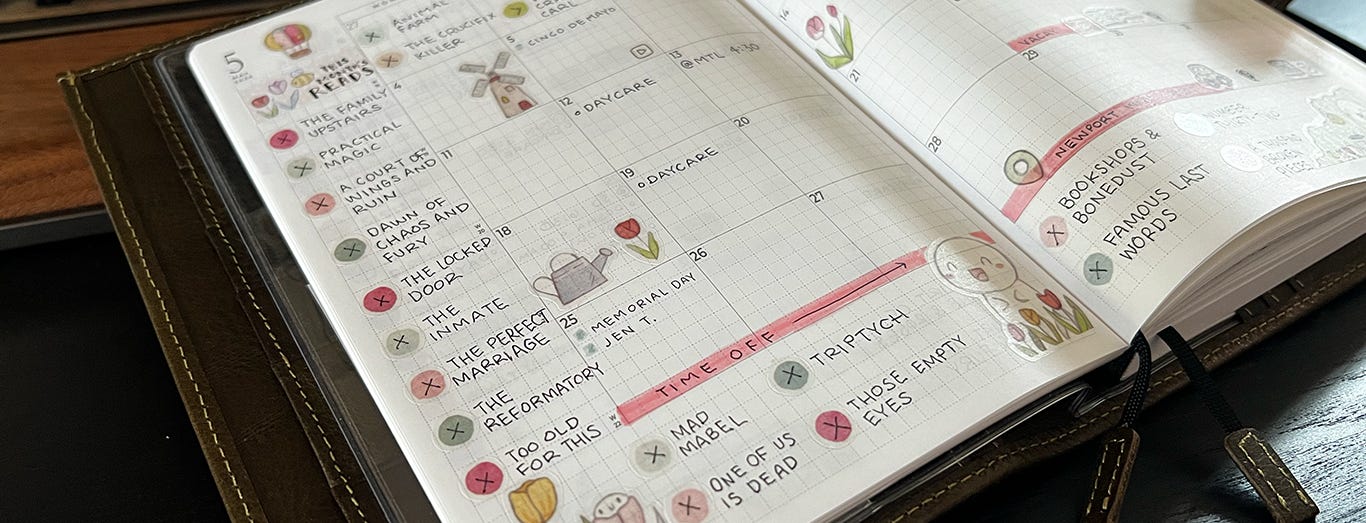 5
MAY
THIS
READS
THE FAMILY
UPSTAIRS
PRACTICAL
MAGIC
A COURT OF
WINGS AND
RUIN
DAWN OF
CHAOS AND
FURY
THE LOCKED
DOOR
THE
INMATE
THE PERFECT
MARRIAGE
THE
REFORMATORY
TOO OLD
FOR THIS
27
ANIMAL
FARM
THE CRUCIFIX
KILLER
4
11
18
25
MEMORIAL DAY
JEN T.
CARL
5
CINCO DE MAYO
12
DAYCARE
19
DAYCARE
26
13
@MTL 4:30
20
27
TIME OFF
MAD
MABEL
ONE OF US
IS DEAD
TRIPTYCH
THOSE EMPTY
EYES
14
21
28
29
NEWPORT
BOOKSHOPS &
BONEDUST
FAMOUS LAST
WORDS